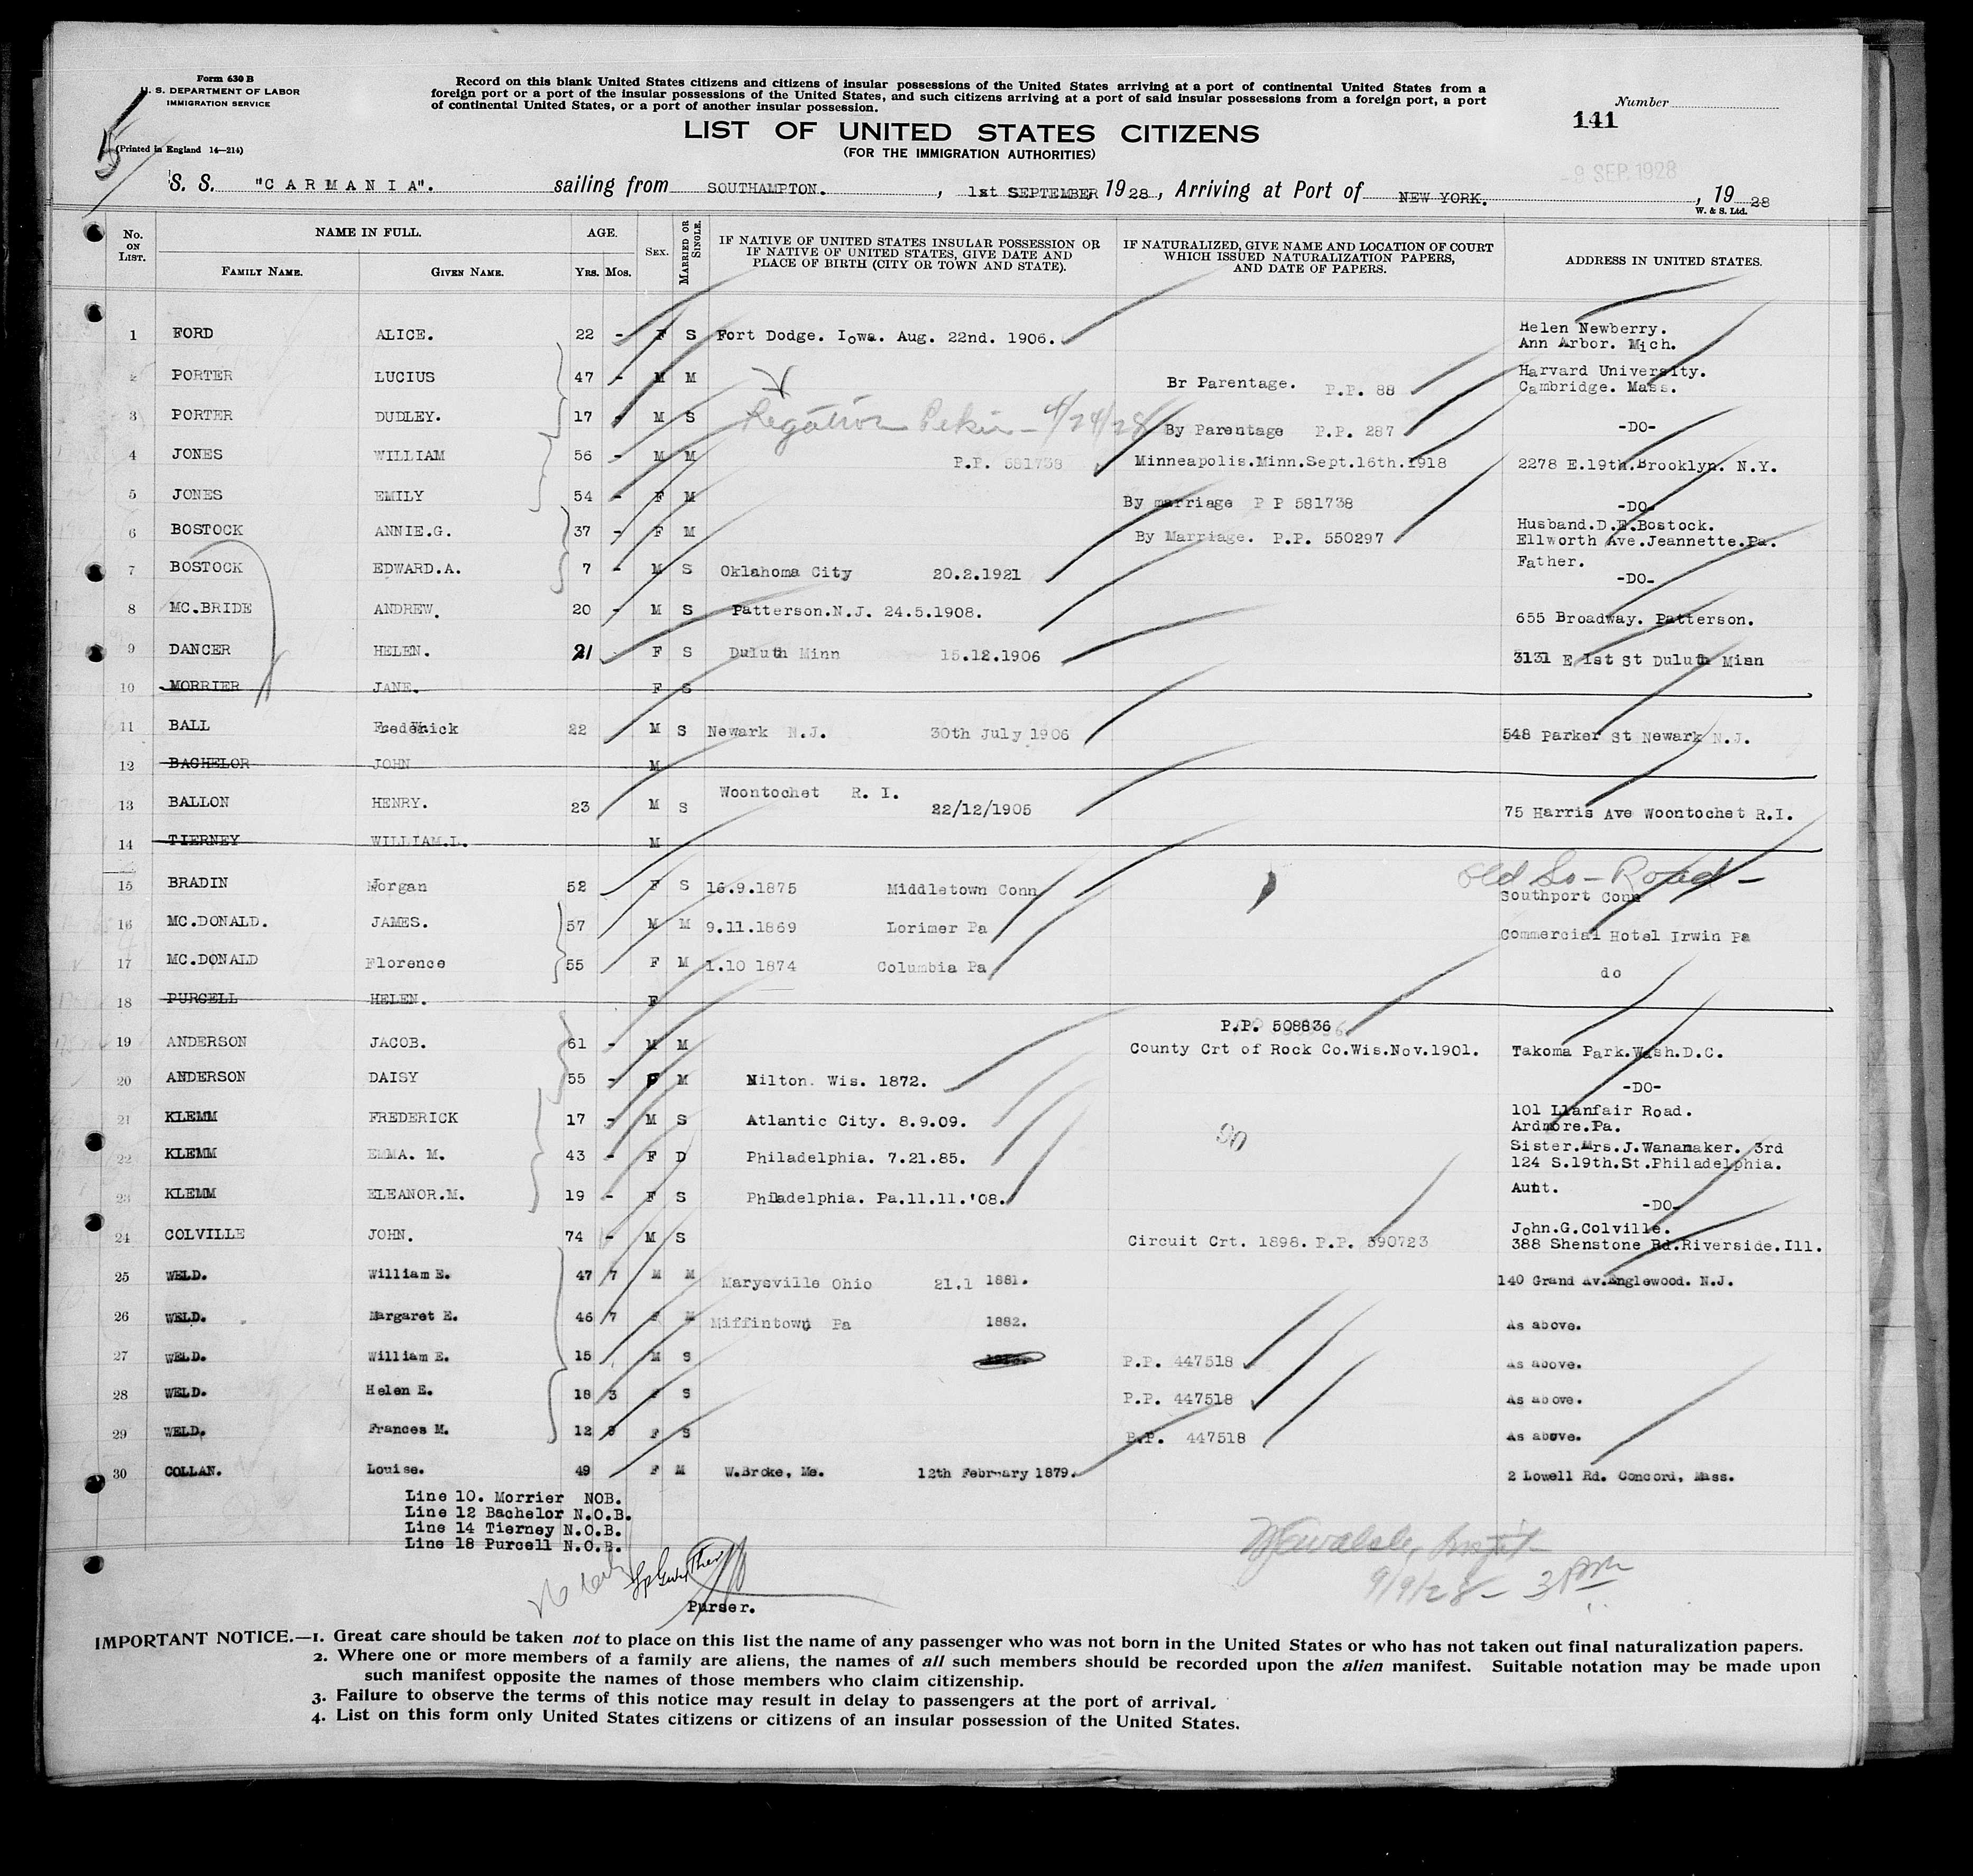 Form 630 B
U. S. DEPARTMENT OF LABOR
IMMIGRATION SERVICE
(Printed in England 14—214)
Record on this blank United States citizens and citizens of insular possessions of the United States arriving at a port of continental United States from a
foreign port or a port of the insular possessions of the United States, and such citizens arriving at a port of said insular possessions from a foreign port, a port
of continental United States, or a port of another insular possession.
Number
141
LIST OF UNITED STATES CITIZENS
(FOR THE IMMIGRATION AUTHORITIES)
-9 SEP. 1928
S. S. "CARMANIA". sailing from SOUTHAMPTON. , 1st SEPTEMBER 1928, Arriving at Port of NEW YORK. , 19 28
W. & S. Ltd.
No. ON LIST. NAME IN FULL. FAMILY NAME. GIVEN NAME. AGE. YRS. MOS. SEX. MARRIED OR SINGLE. IF NATIVE OF UNITED STATES INSULAR POSSESSION OR IF NATIVE OF UNITED STATES, GIVE DATE AND PLACE OF BIRTH (CITY OR TOWN AND STATE). IF NATURALIZED, GIVE NAME AND LOCATION OF COURT WHICH ISSUED NATURALIZATION PAPERS, AND DATE OF PAPERS. ADDRESS IN UNITED STATES.
1 FORD ALICE. 22 - F S Fort Dodge. Iowa. Aug. 22nd. 1906. Helen Newberry. Ann Arbor. Mich.
2 PORTER LUCIUS 47 - M M Br Parentage. P.P. 88 Harvard University. Cambridge. Mass.
3 PORTER DUDLEY. 17 - M S Legation Pekin - 4/24/28 By Parentage P.P. 287 -DO-
4 JONES WILLIAM 56 - M M P.P. 581738 Minneapolis.Minn.Sept.16th.1918 2278 E.19th.Brooklyn. N.Y.
5 JONES EMILY 54 - F M By marriage P P 581738 -DO-
6 BOSTOCK ANNIE.G. 37 - F M By Marriage. P.P. 550297 Husband.D.E.Bostock. Ellworth Ave.Jeannette.Pa.
7 BOSTOCK EDWARD.A. 7 - M S Oklahoma City 20.2.1921 Father. -DO-
8 MC.BRIDE ANDREW. 20 - M S Patterson.N.J. 24.5.1908. 655 Broadway. Patterson.
9 DANCER HELEN. 21 F S Duluth Minn 15.12.1906 3131 E 1st St Duluth Minn
10 MORRIER JANE. F S
11 BALL Frederick 22 M S Newark N.J. 30th July 1906 548 Parker St Newark N.J.
12 BACHELOR JOHN M
13 BALLON HENRY. 23 M S Woontochet R. I. 22/12/1905 75 Harris Ave Woontochet R.I.
14 TIERNEY WILLIAM.L. M
15 BRADIN Morgan 52 F S 16.9.1875 Middletown Conn Old So - Road - Southport Conn
16 MC.DONALD. JAMES. 57 M M 9.11.1869 Lorimer Pa Commercial Hotel Irwin Pa
17 MC.DONALD Florence 55 F M 1.10 1874 Columbia Pa do
18 PURCELL HELEN. F
19 ANDERSON JACOB. 61 - M M P.P. 508836 County Crt of Rock Co.Wis.Nov.1901. Takoma Park.Wash.D.C.
20 ANDERSON DAISY 55 - F M Milton. Wis. 1872. -DO-
21 KLEMM FREDERICK 17 - M S Atlantic City. 8.9.09. 101 Llanfair Road. Ardmore.Pa.
22 KLEMM EMMA. M. 43 - F D Philadelphia. 7.21.85. Sister.Mrs.J.Wanamaker. 3rd 124 S.19th.St.Philadelphia.
23 KLEMM ELEANOR.M. 19 - F S Philadelphia. Pa.11.11.'08. Aunt. -DO-
24 COLVILLE JOHN. 74 - M S Circuit Crt. 1898. P.P. 590723 John.G.Colville. 388 Shenstone Rd.Riverside.Ill.
25 WELD. William E. 47 7 M M Marysville Ohio 21.1 1881. 140 Grand Av.Englewood. N.J.
26 WELD. Margaret E. 46 7 F M Miffintown Pa 1882. As above.
27 WELD. William E. 15 M S P.P. 447518 As above.
28 WELD. Helen E. 18 3 F S P.P. 447518 As above.
29 WELD. Frances M. 12 9 F S P.P. 447518 As above.
30 COLLAN. Louise. 49 F M W.Broke, Me. 12th February 1879. 2 Lowell Rd. Concord, Mass.
Line 10. Morrier NOB.
Line 12 Bachelor N.O.B.
Line 14 Tierney N.O.B.
Line 18 Purcell N.O.B.
9/9/28 - 3 PM
Purser.
IMPORTANT NOTICE.—1. Great care should be taken not to place on this list the name of any passenger who was not born in the United States or who has not taken out final naturalization papers.
2. Where one or more members of a family are aliens, the names of all such members should be recorded upon the alien manifest. Suitable notation may be made upon
such manifest opposite the names of those members who claim citizenship.
3. Failure to observe the terms of this notice may result in delay to passengers at the port of arrival.
4. List on this form only United States citizens or citizens of an insular possession of the United States.